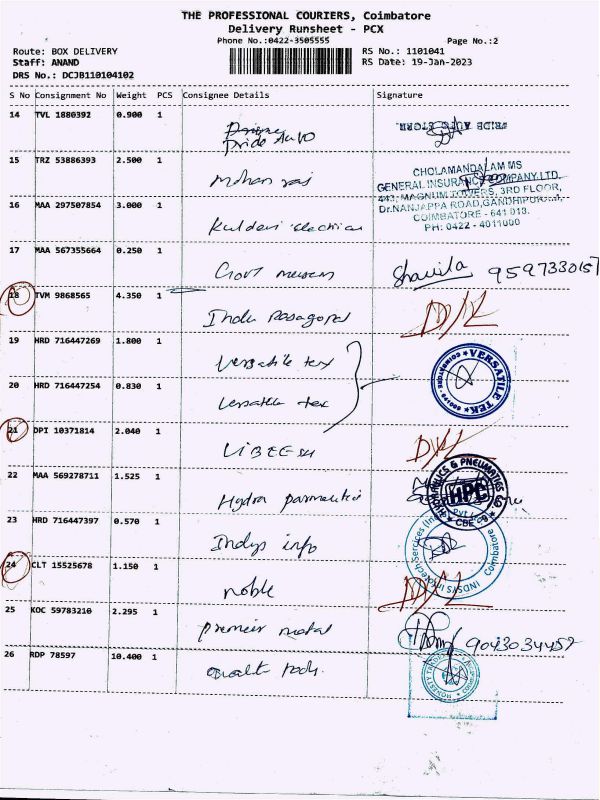 THE PROFESSIONAL COURIERS, Coimbatore
Delivery Runsheet - PCX
Phone No.:0422-3505555 Page No.:2
Route: BOX DELIVERY RS No.: 1101041
Staff: ANAND RS Date: 19-Jan-2023
DRS No.: DCJB110104102
S No Consignment No Weight PCS Consignee Details Signature
14 TVL 1880392 0.900 1
Pride Auto
PRIDE AUTO STORE.
15 TRZ 53886393 2.500 1 Mohan raj
CHOLAMANDALAM MS
GENERAL INSURANCE COMPANY LTD.
443, MAGNUM TOWERS, 3RD FLOOR,
Dr.NANJAPPA ROAD, GANDHIPURAM,
COIMBATORE - 641 018.
PH: 0422 - 4011000
16 MAA 297507854 3.000 1 electrical
17 MAA 567355664 0.250 1 Govt museum 9597330157
18 TVM 9868565 4.350 1 Indu Rasagopal D/L
19 HRD 716447269 1.800 1 Versatile tex
VERSATILE TEK
20 HRD 716447254 0.830 1 Versatile tex
21 DPI 10371814 2.040 1 LIBEESH D/L
22 MAA 569278711 1.525 1 Hydra
& PNEUMATICS
HPC
CBE
23 HRD 716447397 0.570 1 Indsys info
INDSYS Infotech Services Coimbatore
24 CLT 15525678 1.150 1 noble D/L
25 KOC 59783210 2.295 1 premier metal 9043034457
26 RDP 78597 10.400 1